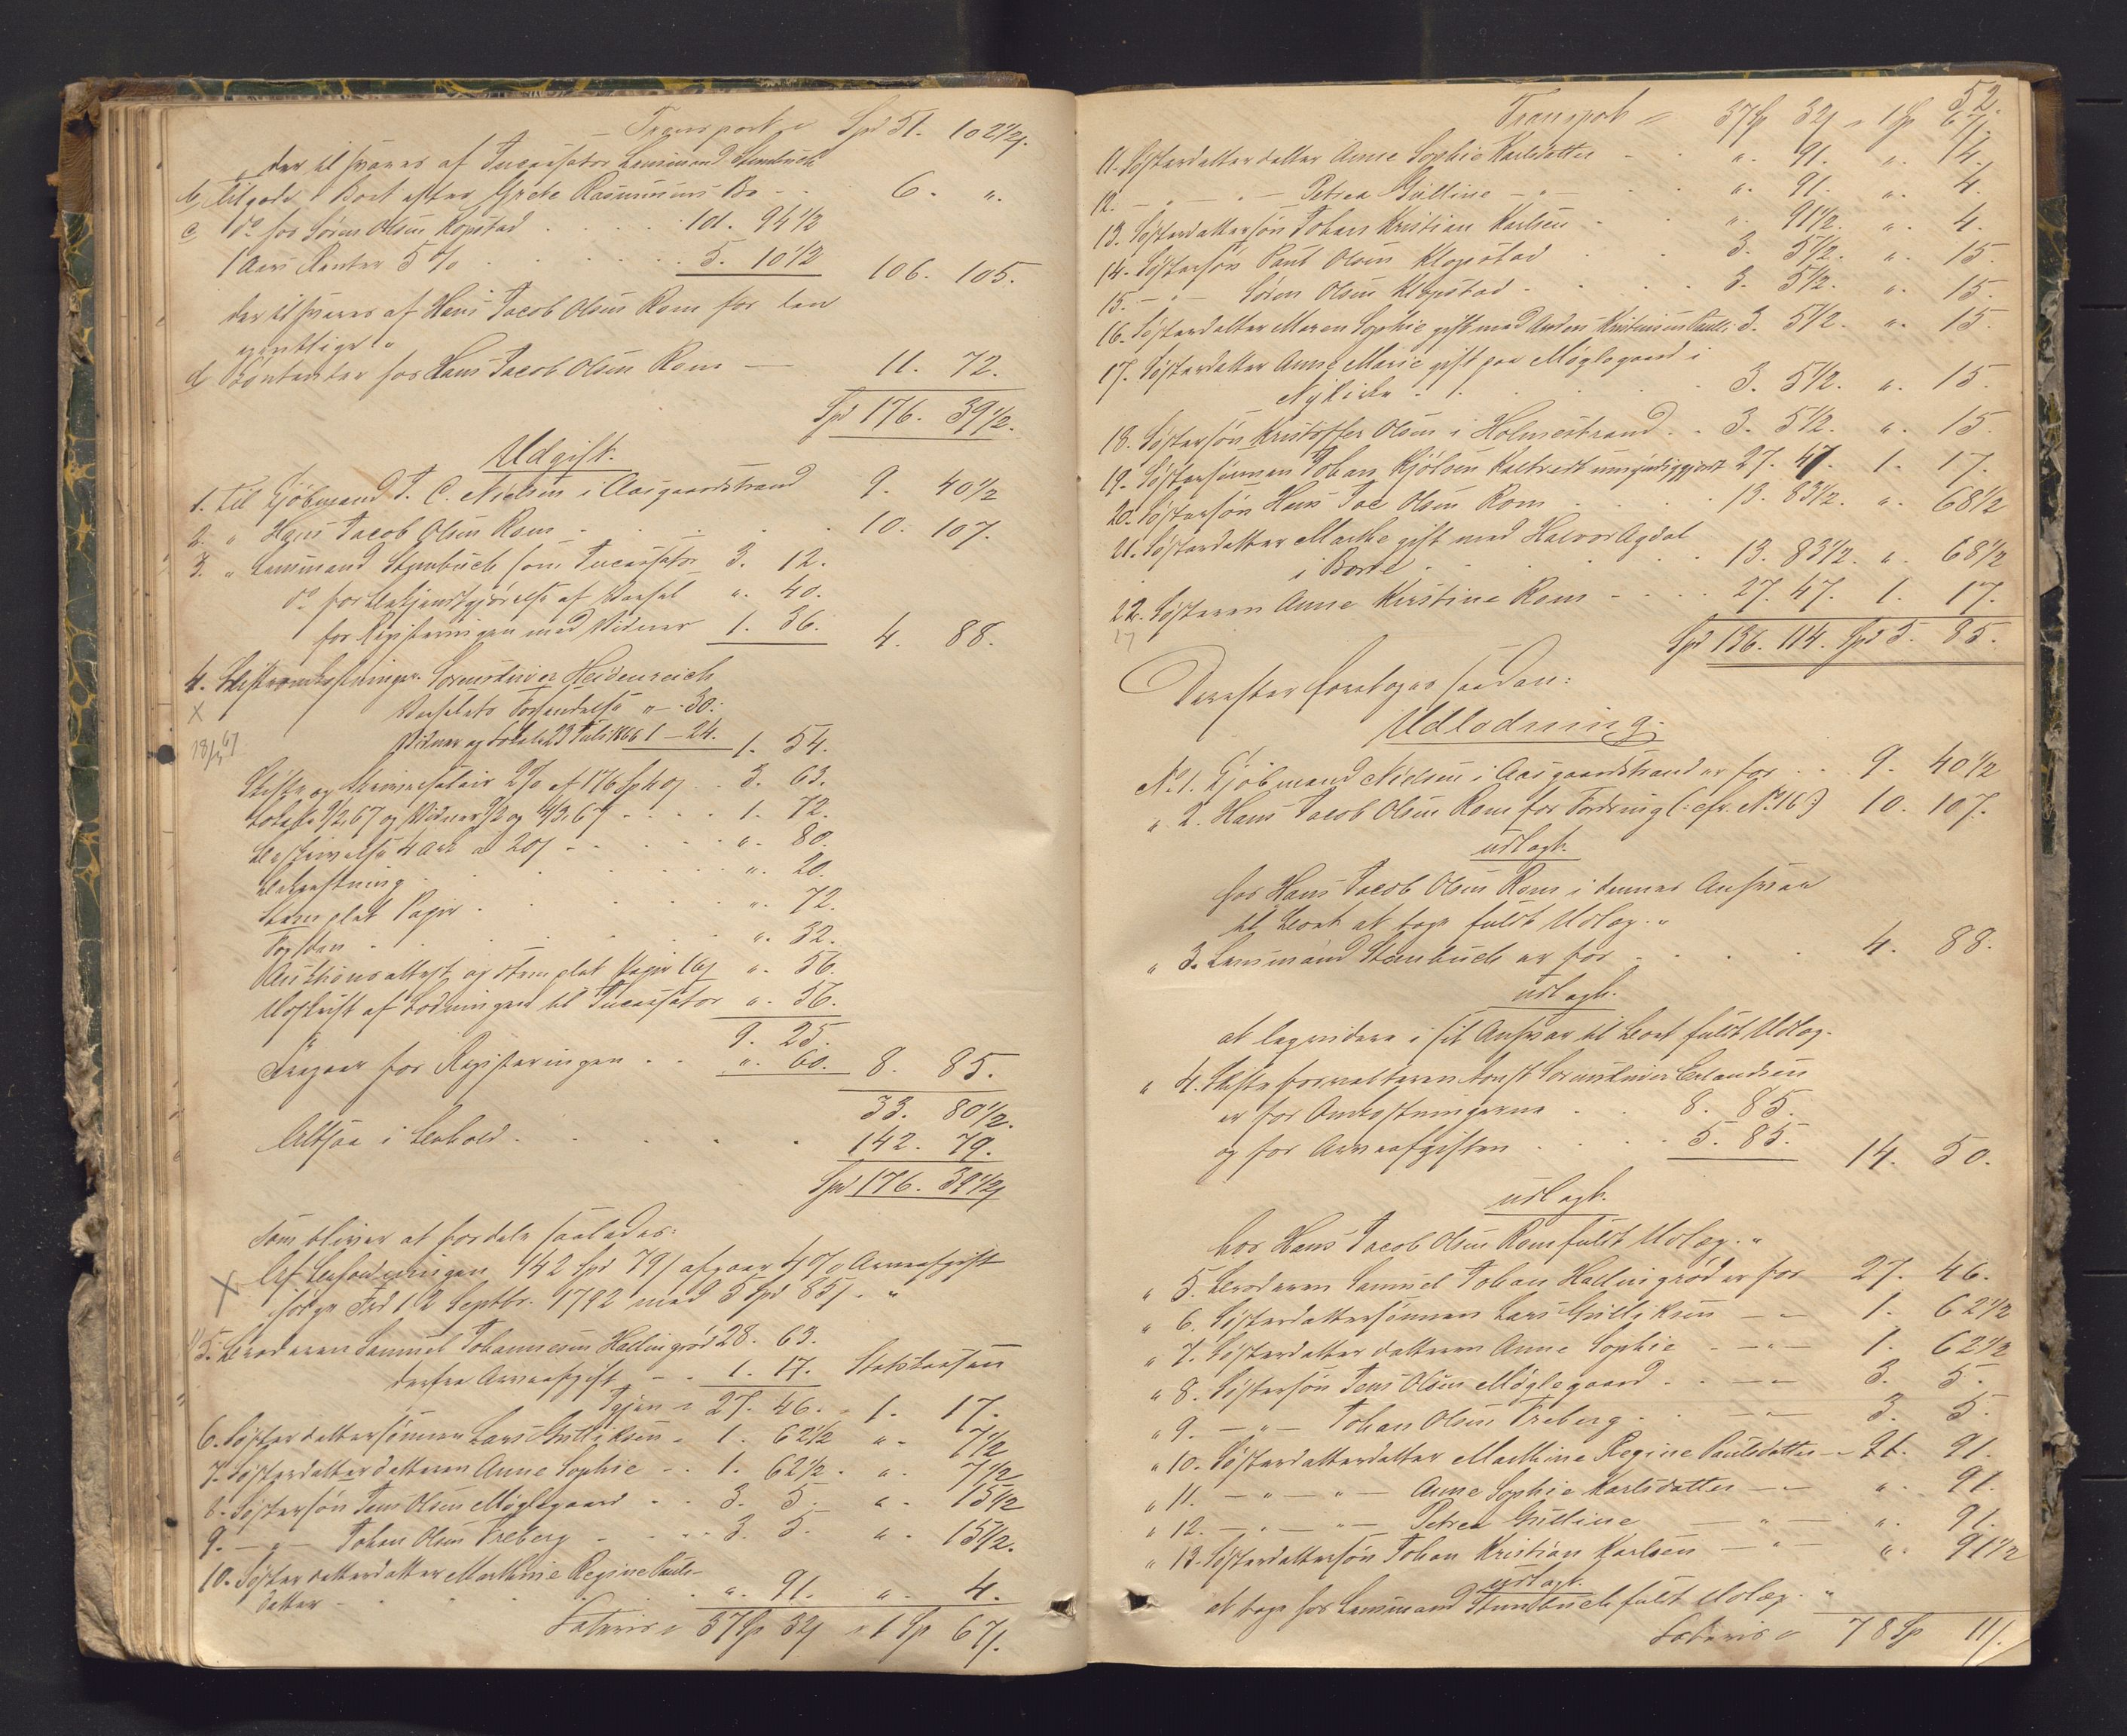 Transport = Spd 51. 102 1/2 ſ.
der tilsvares af Incassator Lensmand Steenbuch
b, Tilgode i Boet efter Grete Rasmusens Bo - - 6. "
c do hos Søren Olsen Kopstad . . . . 101. 94 1/2
1 Aars Renter 5 % . . . . 5. 10 1/2 106. 105.
der tilsvares af Hans Jacob Olsen Rom for den
egentlige "
d Contanter hos Hans Jacob Olsen Rom — 11. 72.
Spd 176. 39 1/2.
Udgift.
1. til Kjøbmand J. C. Nielsen i Aasgaardstrand 9. 40 1/2
2. " Hans Jacob Olsen Rom . . . . 10. 107.
3. " Lensmand Steenbuch som Incassator 3. 12.
do for Bekjendtgjørelse af Varsel ". 40.
for Registeringen med Vidner 1. 36. 4. 88.
4. Skifteomkostninger. Sorenskriver Heidenreich
X Varselets Forsendelse " - 30:
Vidner og Lokale 23 Juli 1866 1 — 24. 1. 54.
Skifte og Skriversalair 2 % af 176 Sp 40 ſ . . 3. 63.
Lokale 9/2 67 og Vidner 9/2 og 4/3 67 - . . . 1. 72.
Beskrivelse 4 Ark a 20 ſ - . . . ". 80.
Bekræftning . . . . ". 20.
Stemplet Papir . . . . ". 72.
Fogden . . . . ". 32.
Auctionsattest og stemplet Papir 16 ſ ". 56.
Udskrift af Lodningen til Incassator ". 56.
9. 25.
Fragaar for Registeringen . . ". 60. 8. 85.
33. 80 1/2.
Altsaa i Behold . . . . 142. 79.
Spd 176. 39 1/2 ſ
Som bliver at fordele saaledes:
X Af Beholdningen 142 Spd 79 ſ afgaar 4 % Arveafgift
følge Frd 12 Septbr. 1792 med 5 Spd 85 ſ. "
5. Broderen Samuel Johannesen Hallingrød 28. 63.
derfra Arveafgift - - 1. 17. Statskassen
Igjen = 27. 46. 1. 17.
6. Søsterdattersønnen Lars Gulliksen - 1. 62 1/2 ". 7 1/2
7. Søsterdatterdatteren Anne Sophie - . 1. 62 1/2. ". 7 1/2
8. Søstersøn Jens Olsen Møglegaard . . 3. 5. ". 15 1/2
9. — " — Johan Olsen Freberg - . . . 3. 5. ". 15 1/2.
10. Søsterdatterdatter Marthine Regine Pauls-
datter - . . . . ". 91. ". 4.
Lateris = 37 Sp 32 ſ = 1 Sp 67 ſ.
52.
Transport = 37 Sp 32 ſ = 1 Sp 67 ſ.
11. Søsterdatterdatter Anne Sophie Karlsdatter - . ". 91. ". 4.
12. — " — " — Petrea Gulline — " — . . ". 91. ". 4.
13. Søsterdattersøn Johan Kristian Karlsen . . ". 91 1/2. ". 4.
14. Søstersøn Paul Olsen Klopstad . . 3. 5 1/2. ". 15.
15. — " — Søren Olsen Klopstad . . . 3. 5 1/2. ". 15.
16. Søsterdatter Maren Sophie gift med Anders Kristensen 3. 5 1/2. ". 15.
17. Søsterdatter Anne Marie gift paa Møglegaard i
Nykirke . . . . . 3. 5 1/2. ". 15.
18. Søstersøn Kristoffer Olsen i Holmestrand . . 3. 5 1/2. ". 15.
19. Søstersønnen Johan Kjølsen Kaltvedt umyndiggjort 27. 47. 1. 17.
20. Søstersøn Hans Jac Olsen Rom . . . 13. 83 1/2. ". 68 1/2
21. Søsterdatter Marthe gift med Halvor Agdal
i Borre . . . . . 13. 83 1/2. ". 68 1/2
22. Søsteren Anne Kirstine Rom - - . . . 27. 47. 1. 17.
17
Spd 136. 114. Spd 5. 85.
Derefter foretoges saadan:
Udlodning.
No 1. Kjøbmand Nielsen i Aasgaardstrand er for . . 9. 40 1/2
" 2. Hans Jacob Olsen Rom for Fordring (: cfr. No 16 :) 10. 107.
udlagt.
hos Hans Jacob Olsen Rom i dennes Ansvar
til Boet at tage fuldt Udlæg. "
" 3. Lensmand Steenbuch er for - . . . . 4. 88.
udlagt.
at liqvidere i sit Ansvar til Boet fuldt Udlæg.
" 4. Skifteforvalteren const Sorenskriver Erlandsen
er for Omkostningerne . . 8. 85.
og for Arveafgiften . . . 5. 85. 14. 50.
udlagt.
hos Hans Jacob Olsen Rom fuldt Udlæg. "
" 5. Broderen Samuel Johan Hallingrød er for 27. 46.
" 6. Søsterdattersønnen Lars Gulliksen — " — 1. 62 1/2
" 7. Søsterdatterdatteren Anne Sophie - — " — 1. 62 1/2
" 8. Søstersøn Jens Olsen Møglegaard . . — " — 3. 5.
" 9. — " — Johan Olsen Freberg . . — " — 3. 5.
" 10. Søsterdatterdatter Marthine Regine Paulsdatter - 91.
" 11. — " — " — Anne Sophie Karlsdatter — " — ". 91.
" 12. — " — " — Petrea Gulline — " — ". 91.
" 13. Søsterdattersøn Johan Kristian Karlsen — " — ". 91 1/2
udlagt.
at tage hos Lensmand Steenbuch fuldt Udlæg. "
Lateris = 78 Sp 11 ſ.